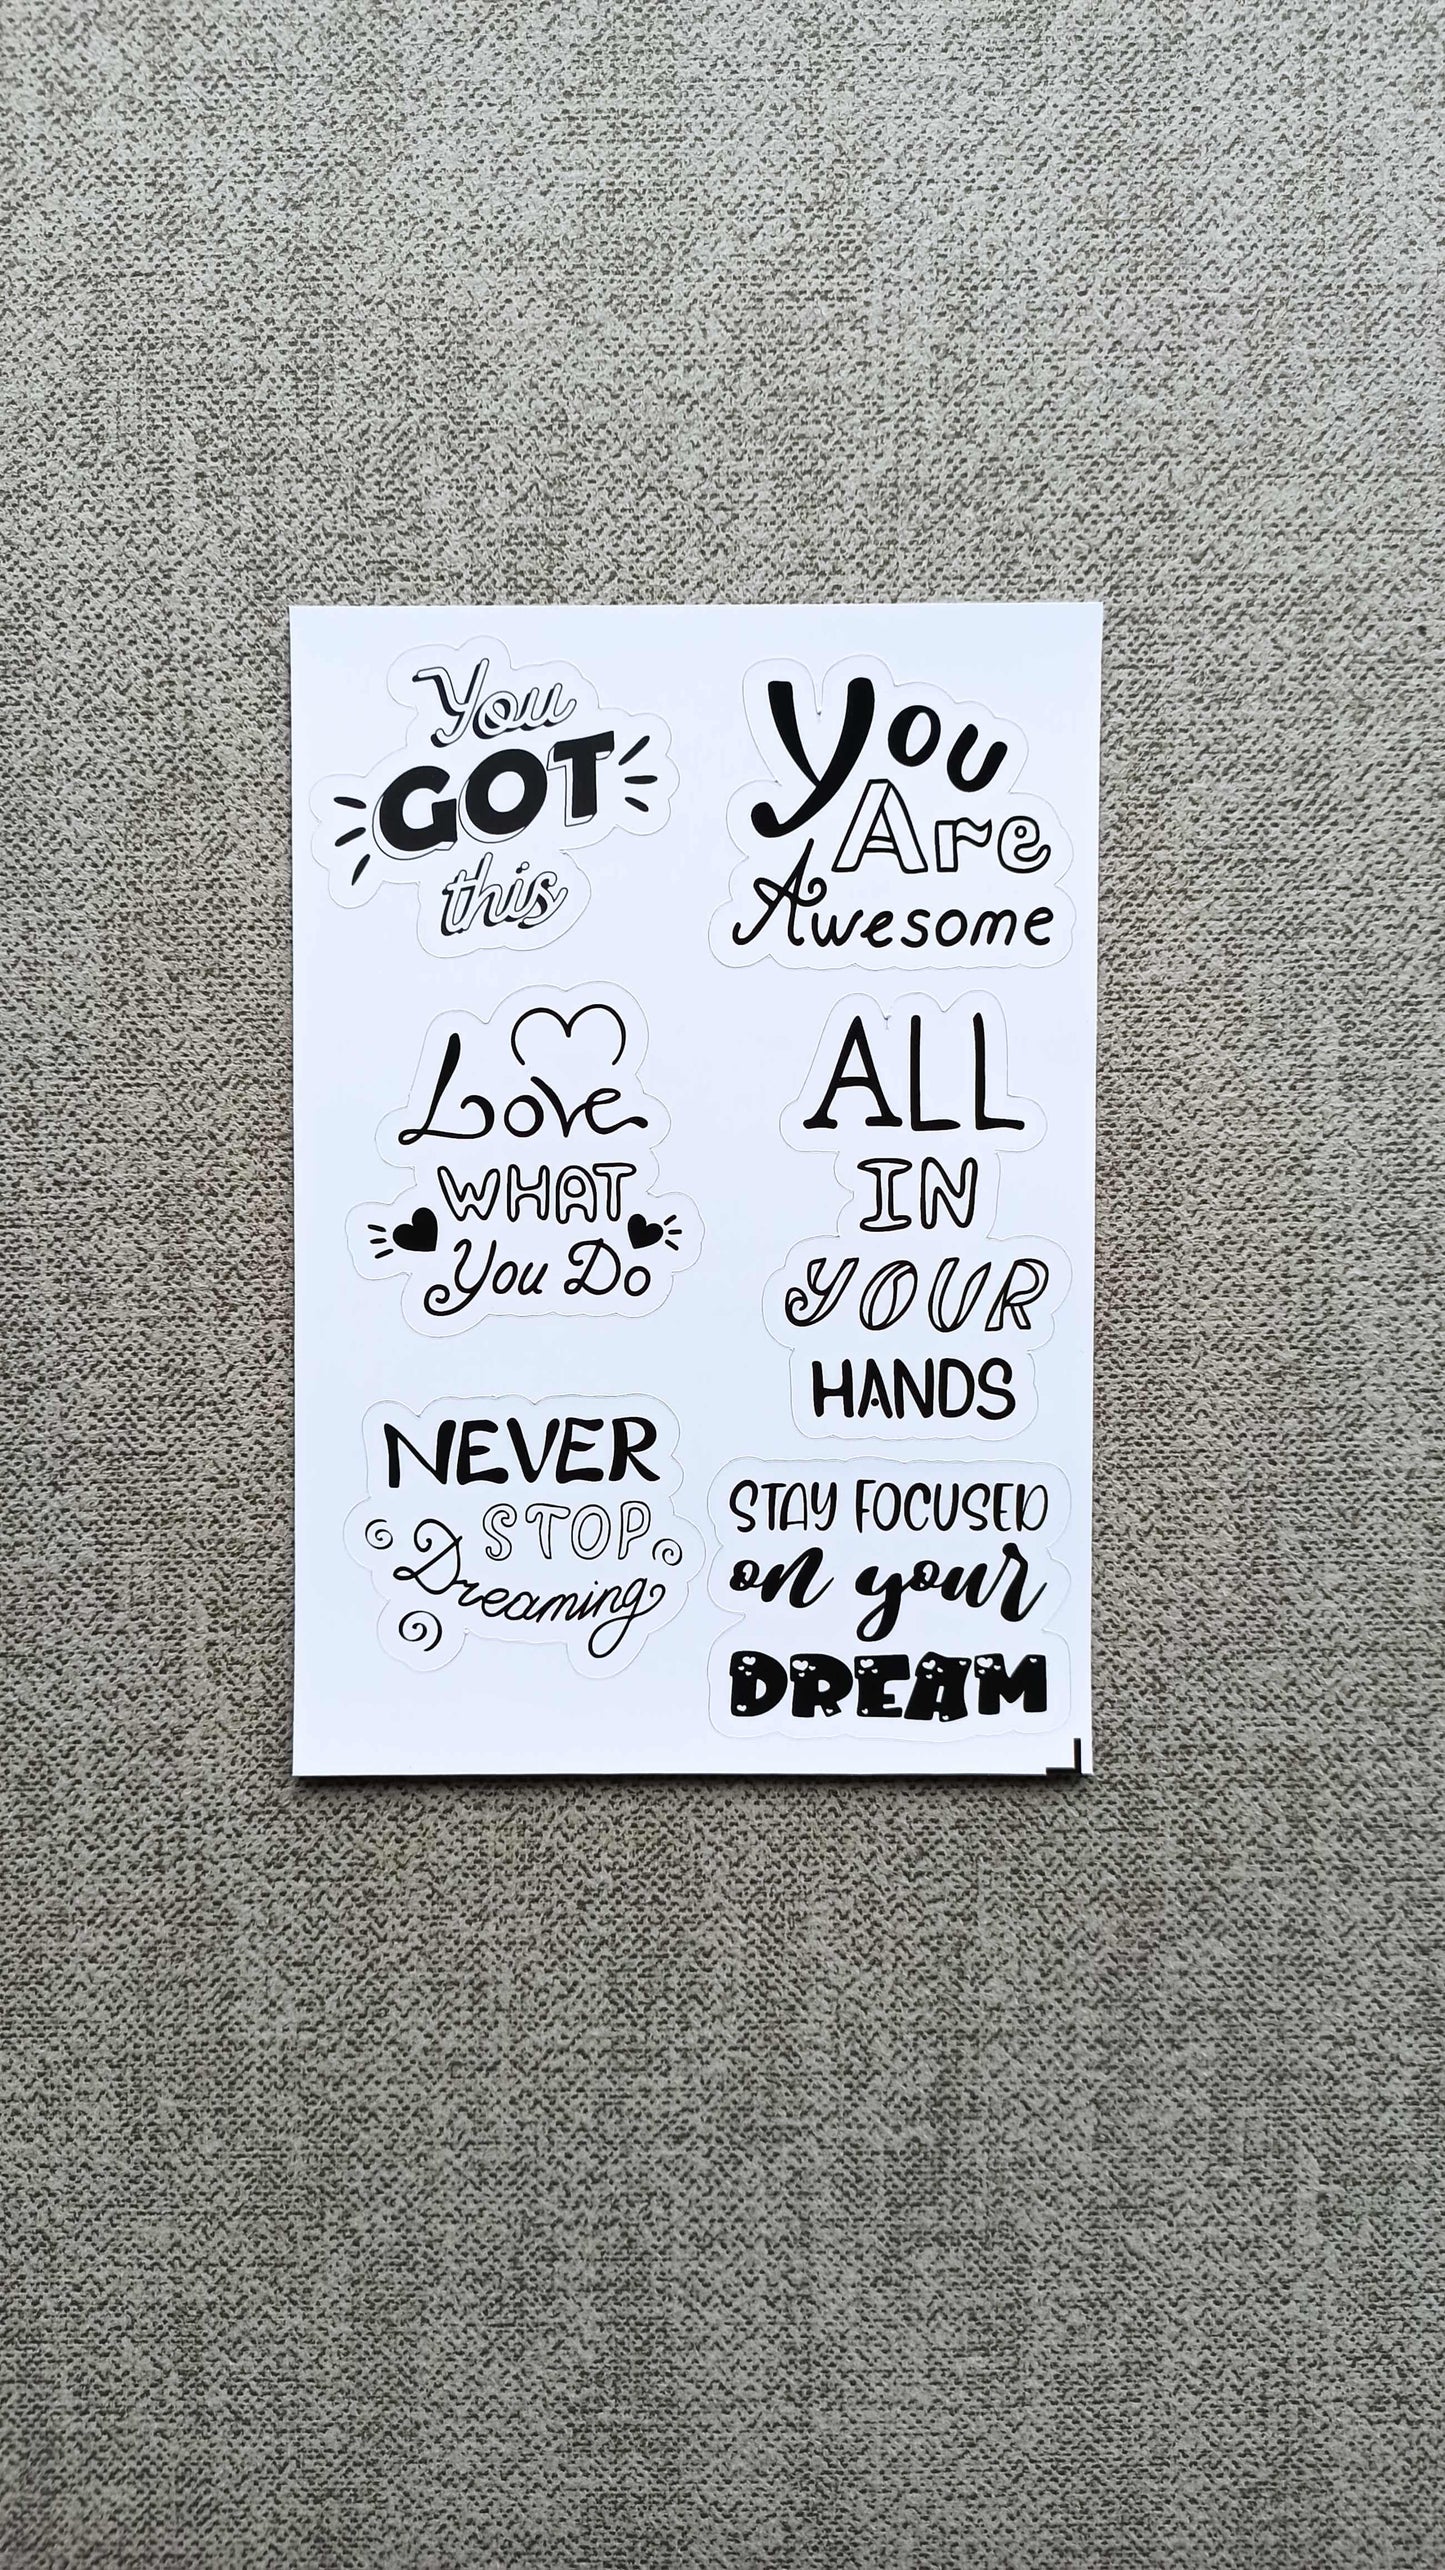 You
GOT
this
You
Are
Awesome
Love
WHAT
You Do
ALL
IN
YOUR
HANDS
NEVER
STOP
Dreaming
STAY FOCUSED
on your
DREAM